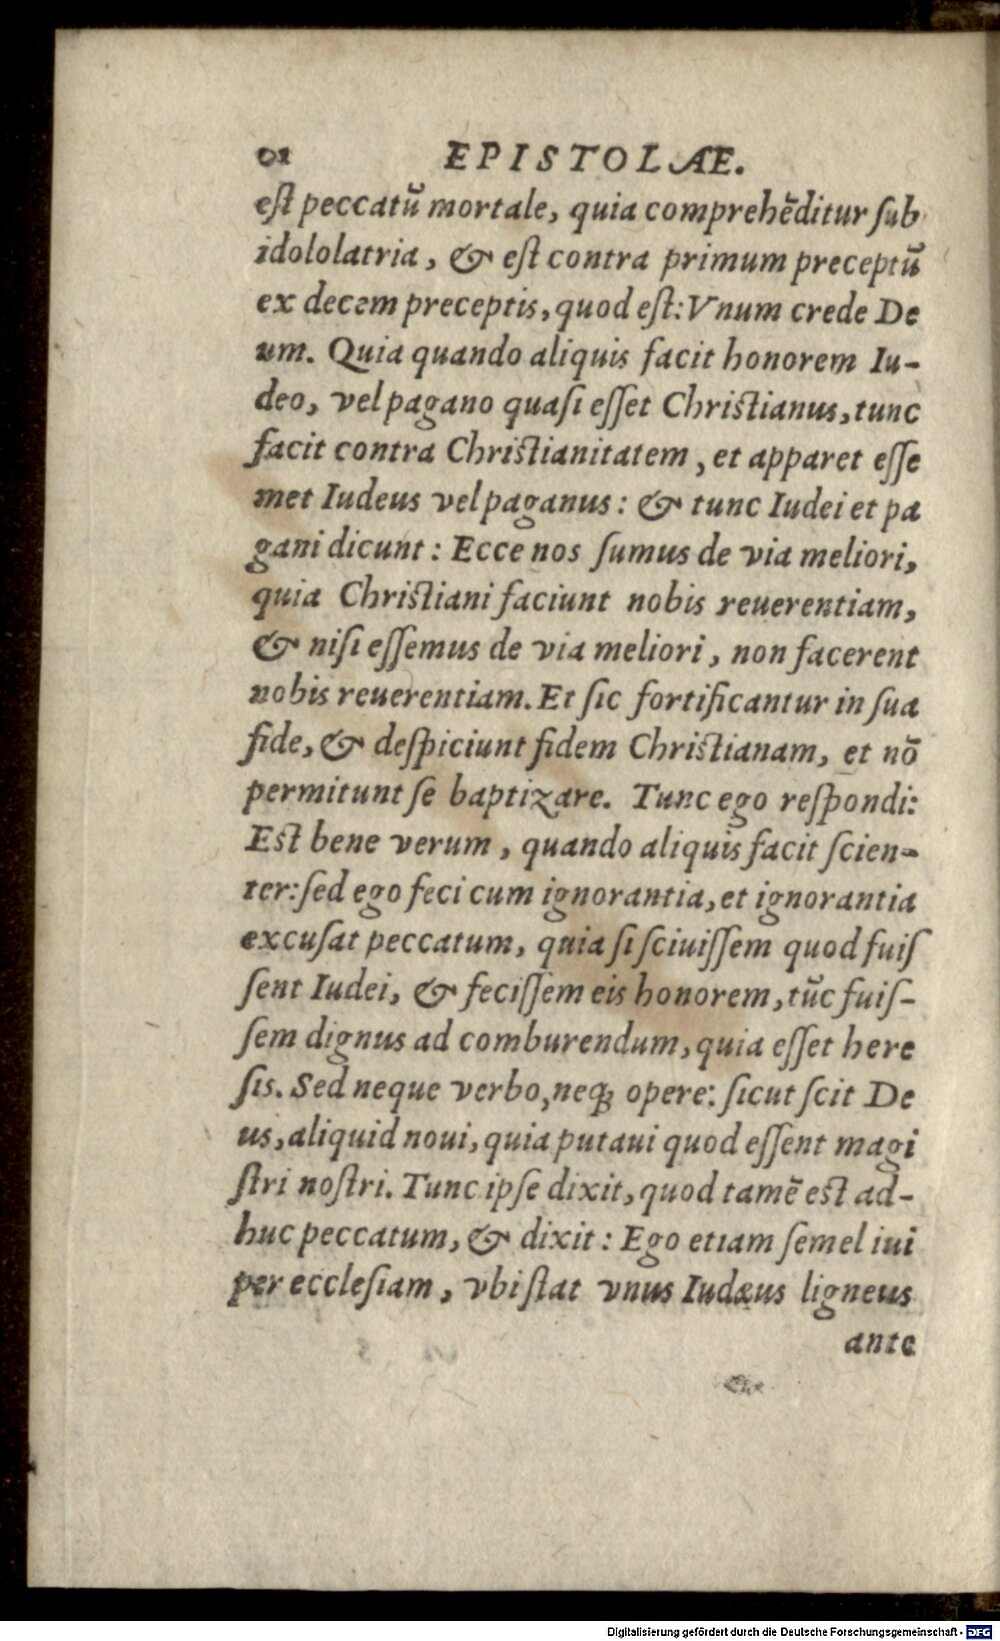 01 EPISTOLÆ.
est peccatū mortale, quia comprehēditur sub
idololatria, & est contra primum preceptū
ex decem preceptis, quod est: Vnum crede De
um. Quia quando aliquis facit honorem Iu-
deo, vel pagano quasi esset Christianus, tunc
facit contra Christianitatem, et apparet esse
met Iudeus vel paganus: & tunc Iudei et pa
gani dicunt: Ecce nos sumus de via meliori,
quia Christiani faciunt nobis reuerentiam,
& nisi essemus de via meliori, non facerent
nobis reuerentiam. Et sic fortificantur in sua
fide, & despiciunt fidem Christianam, et nō
permitunt se baptizare. Tunc ego respondi:
Est bene verum, quando aliquis facit scien-
ter: sed ego feci cum ignorantia, et ignorantia
excusat peccatum, quia si sciuissem quod fuis
sent Iudei, & fecissem eis honorem, tūc fuis-
sem dignus ad comburendum, quia esset here
sis. Sed neque verbo, neq; opere: sicut scit De
us, aliquid noui, quia putaui quod essent magi
stri nostri. Tunc ipse dixit, quod tamē est ad-
huc peccatum, & dixit: Ego etiam semel iui
per ecclesiam, vbi stat vnus Iudæus ligneus
ante
Digitalisierung gefördert durch die Deutsche Forschungsgemeinschaft - DFG